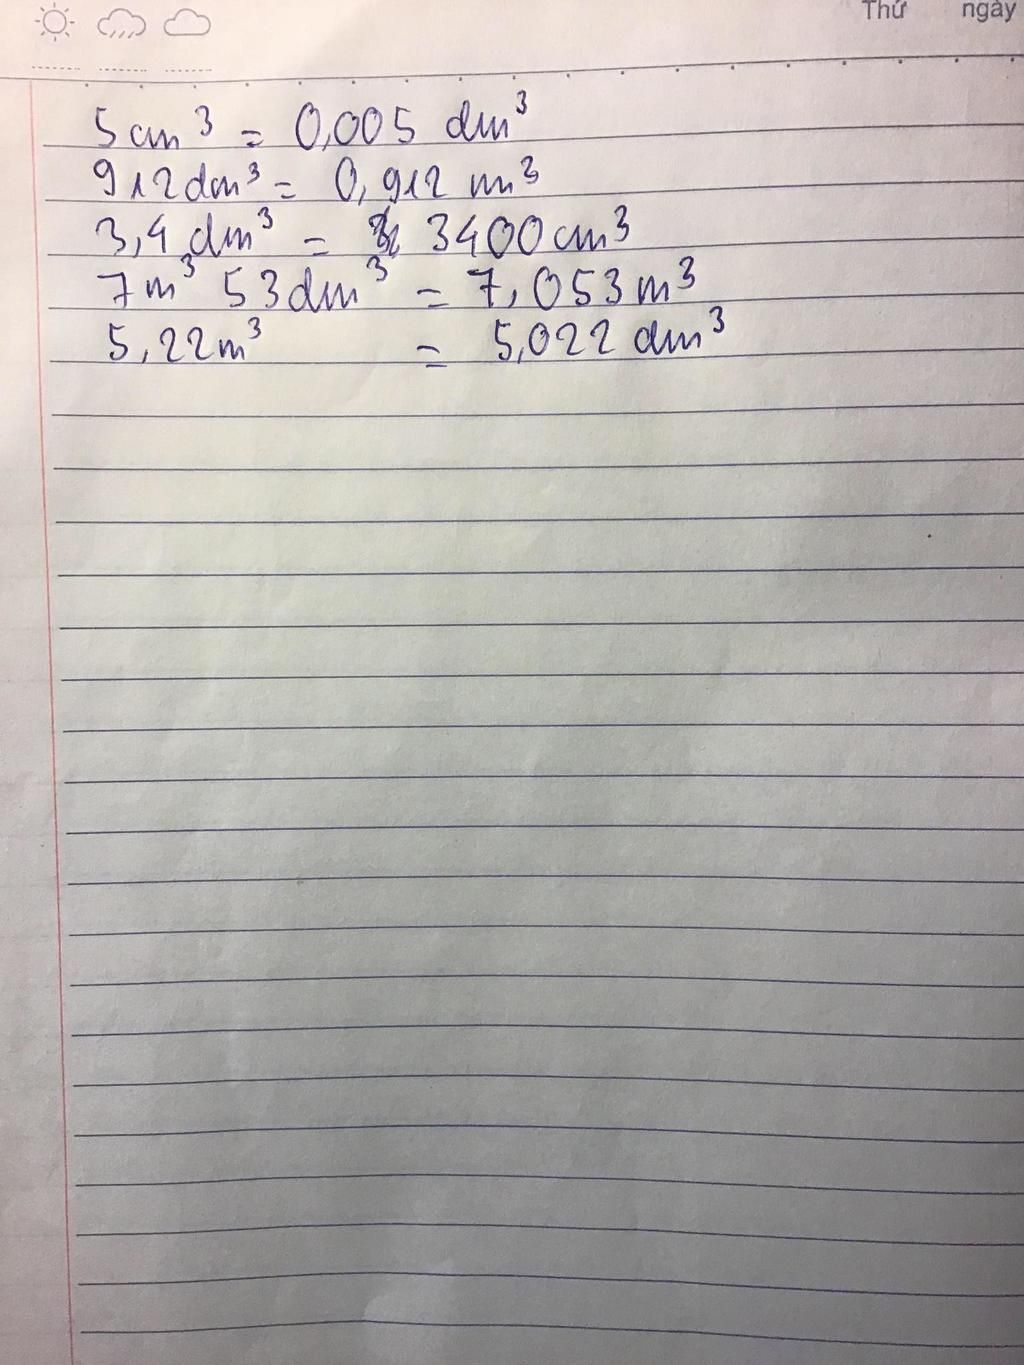 Thứ ngày
5cm³ = 0,005 dm³
912dm³ = 0,912 m³
3,4 dm³ = 3400cm³
7m³ 53dm³ = 7,053m³
5,22m³ = 5,022 dm³